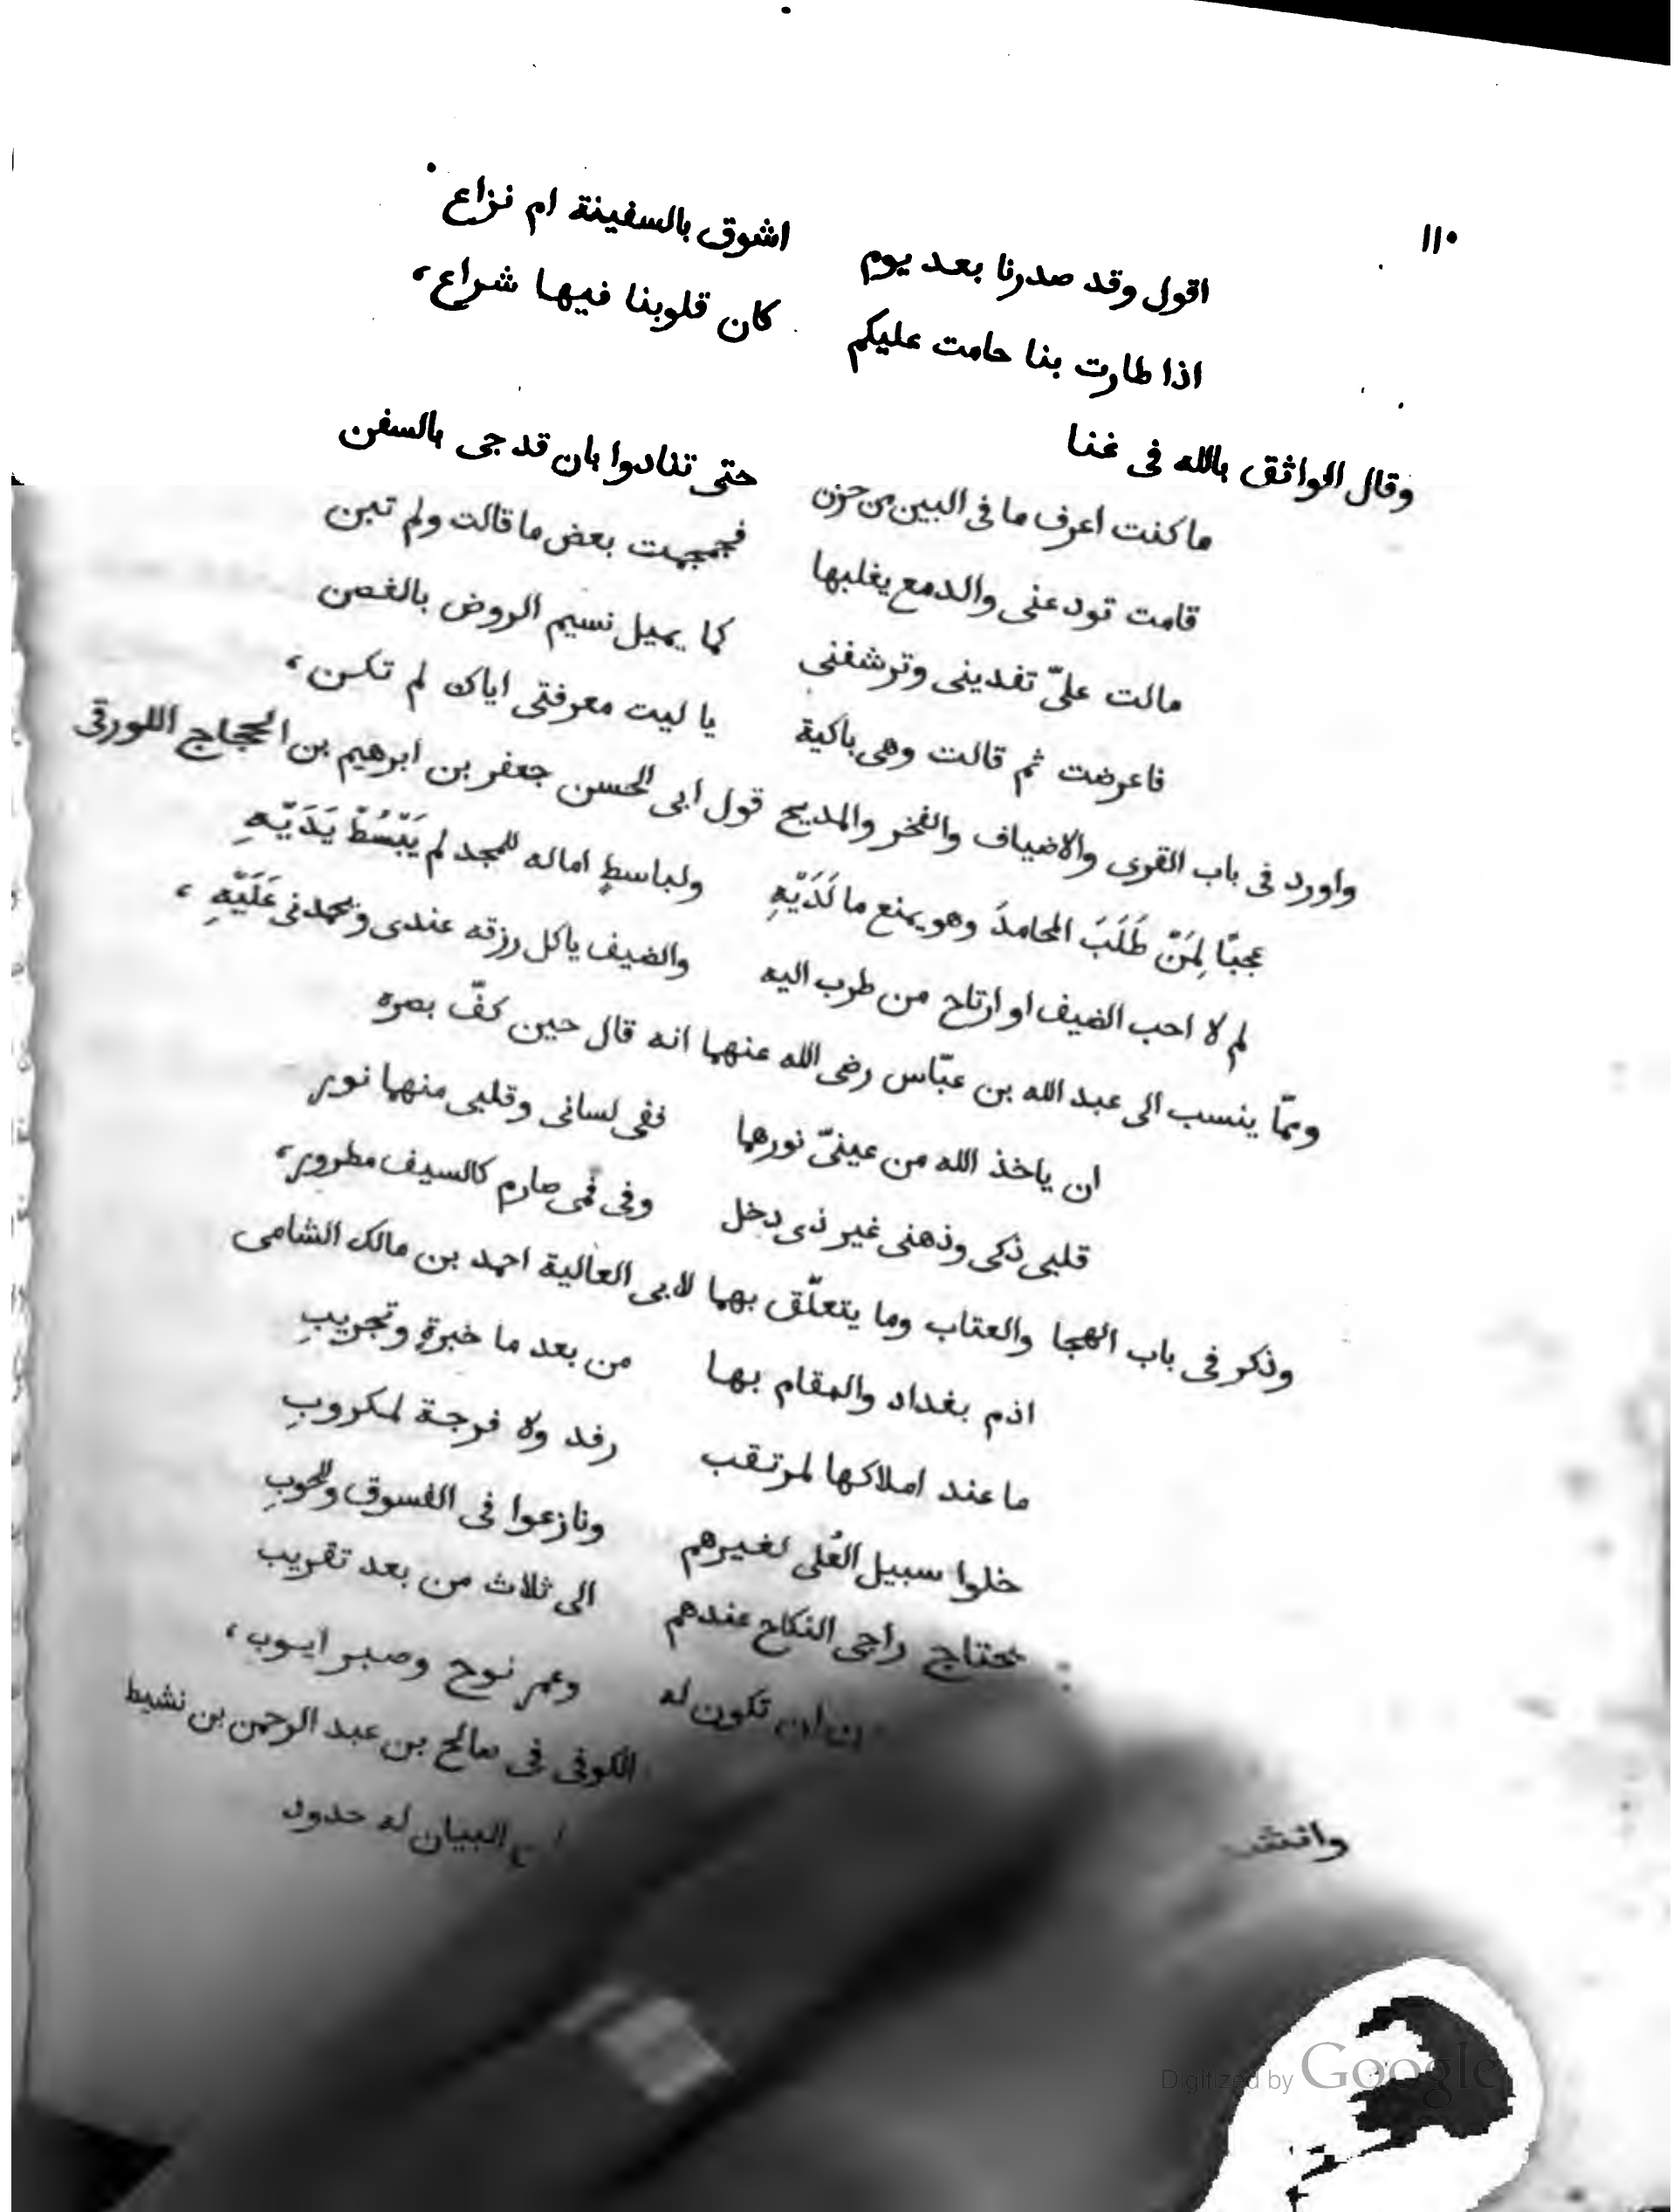 ١١٠
اقول وقد صدرنا بعد يوم اشوق بالسفينة ام نزاع
اذا طارت بنا حامت عليكم كان قلوبنا فيها شراع،
وقال الواثق بالله فى غنا
ما كنت اعرف ما فى البين من حزن حتى تنادوا بان قد جى بالسفن
قامت تودعنى والدمع يغلبها فجمجمت بعض ما قالت ولم تبن
مالت علىّ تفدينى وترشفنى كما يميل نسيم الروض بالغصن
فاعرضت ثم قالت وهى باكية يا ليت معرفتى اياك لم تكن،
واورد فى باب القرى والاضياف والفخر والمديح قول ابى الحسن جعفر بن ابرهيم بن الحجاج اللورقى
عجبًا لِمَنْ طَلَبَ المحامدَ وهو يمنع ما لَدَيْهِ ولباسطٍ اماله للمجد لم يَبْسُطْ يَدَيْهِ
لم لا احب الضيف او ارتاح من طرب اليه والضيف ياكل رزقه عندى ويحمدنى عَلَيْهِ،
وممّا ينسب الى عبد الله بن عبّاس رضى الله عنهما انه قال حين كفّ بصره
ان ياخذ الله من عينىّ نورهما ففى لسانى وقلبى منهما نور
قلبى ذكى وذهنى غير ذى دخل وفى فمى صارم كالسيف مطرور،
وذكر فى باب الهجا والعتاب وما يتعلّق بهما لابى العالية احمد بن مالك الشامى
اذم بغداد والمقام بها من بعد ما خبرةٍ وتجريبِ
ما عند املاكها لمرتقب رفد ولا فرجة لمكروبِ
خلوا سبيل العُلى لغيرهم ونازعوا فى الفسوق والحوبِ
يحتاج راجى النكاح عندهم الى ثلاث من بعد تقريب
ان تكون له وعمر نوح وصبر ايوب،
الكوفى فى صالح بن عبد الرحمن بن نشيط
البيان له حدود
Digitized by Google